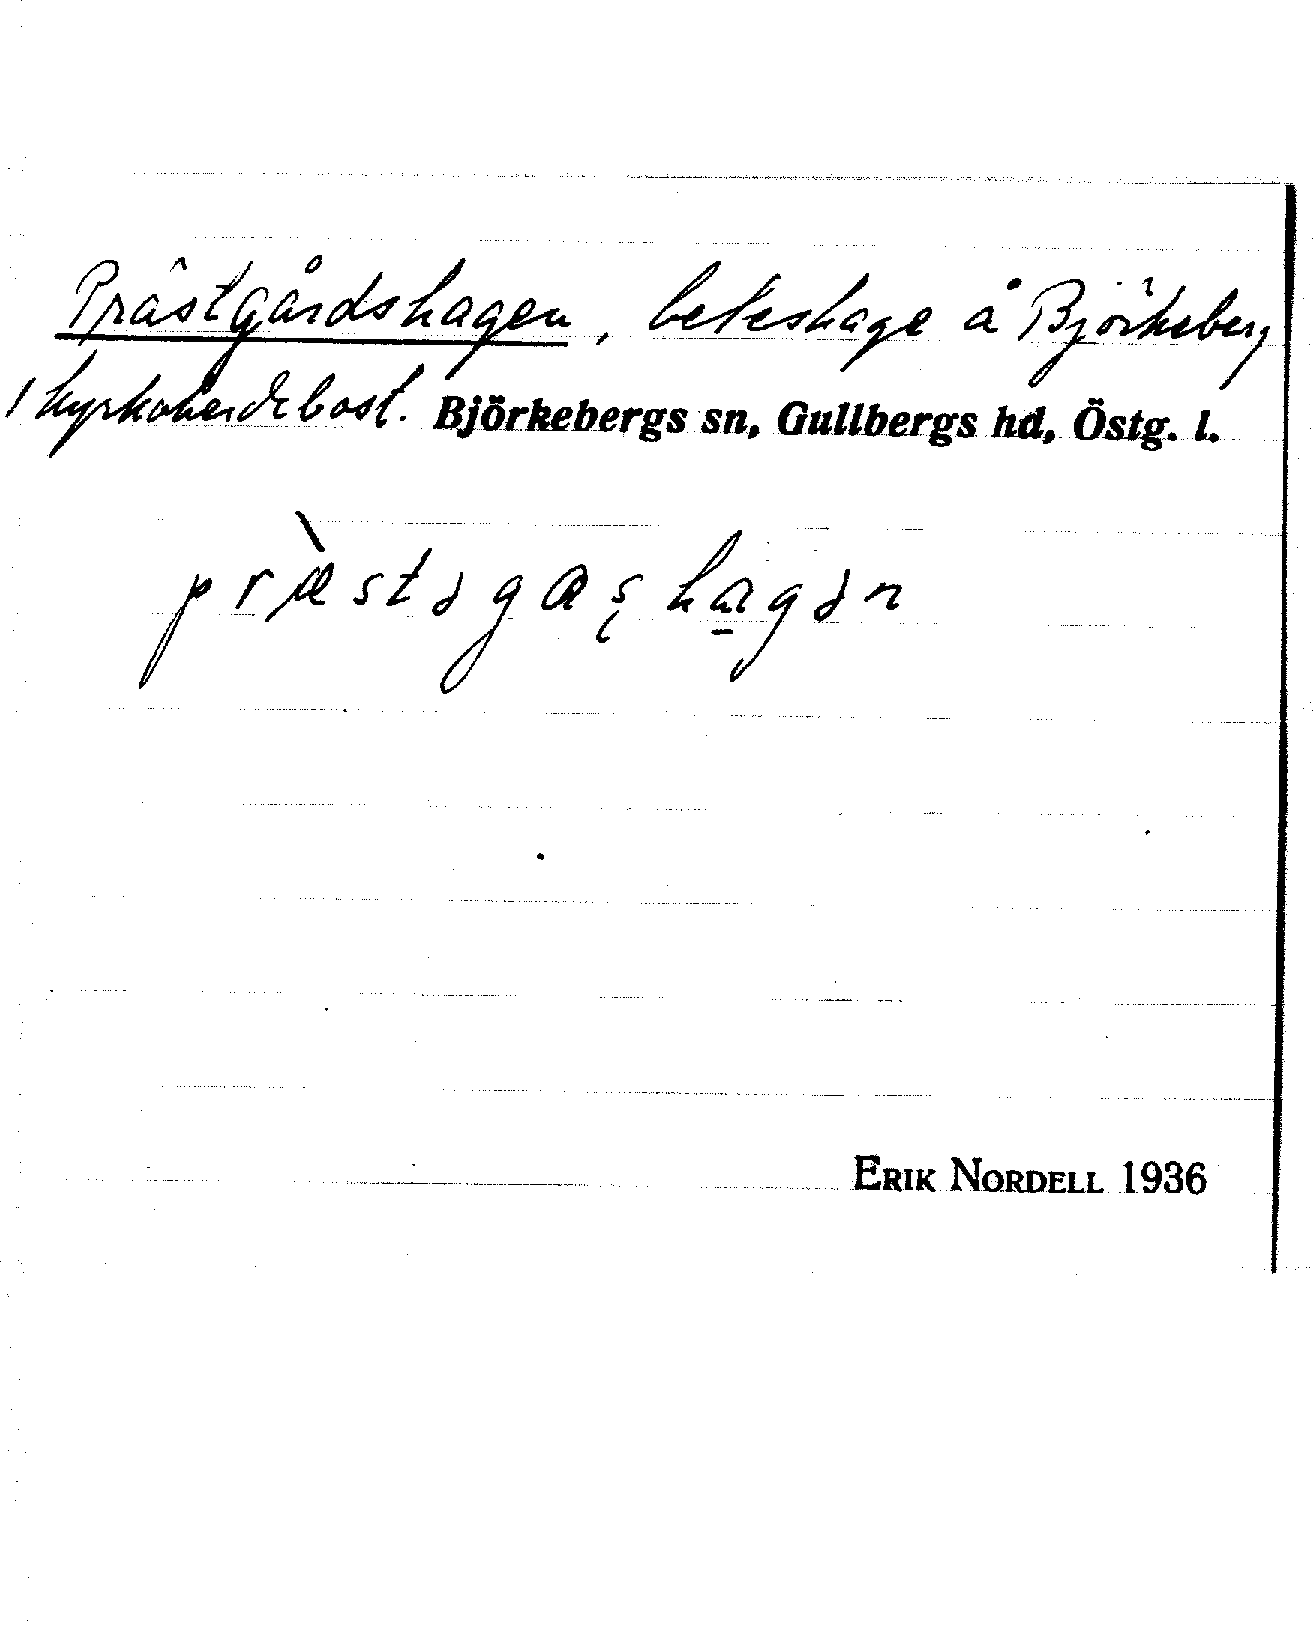 Prästgårdshagen, beteshage å Björkeberg
1 kyrkoherdebost. Björkebergs sn, Gullbergs hd, Östg. l.
præ̀stəgɑʂhagən
ERIK NORDELL 1936